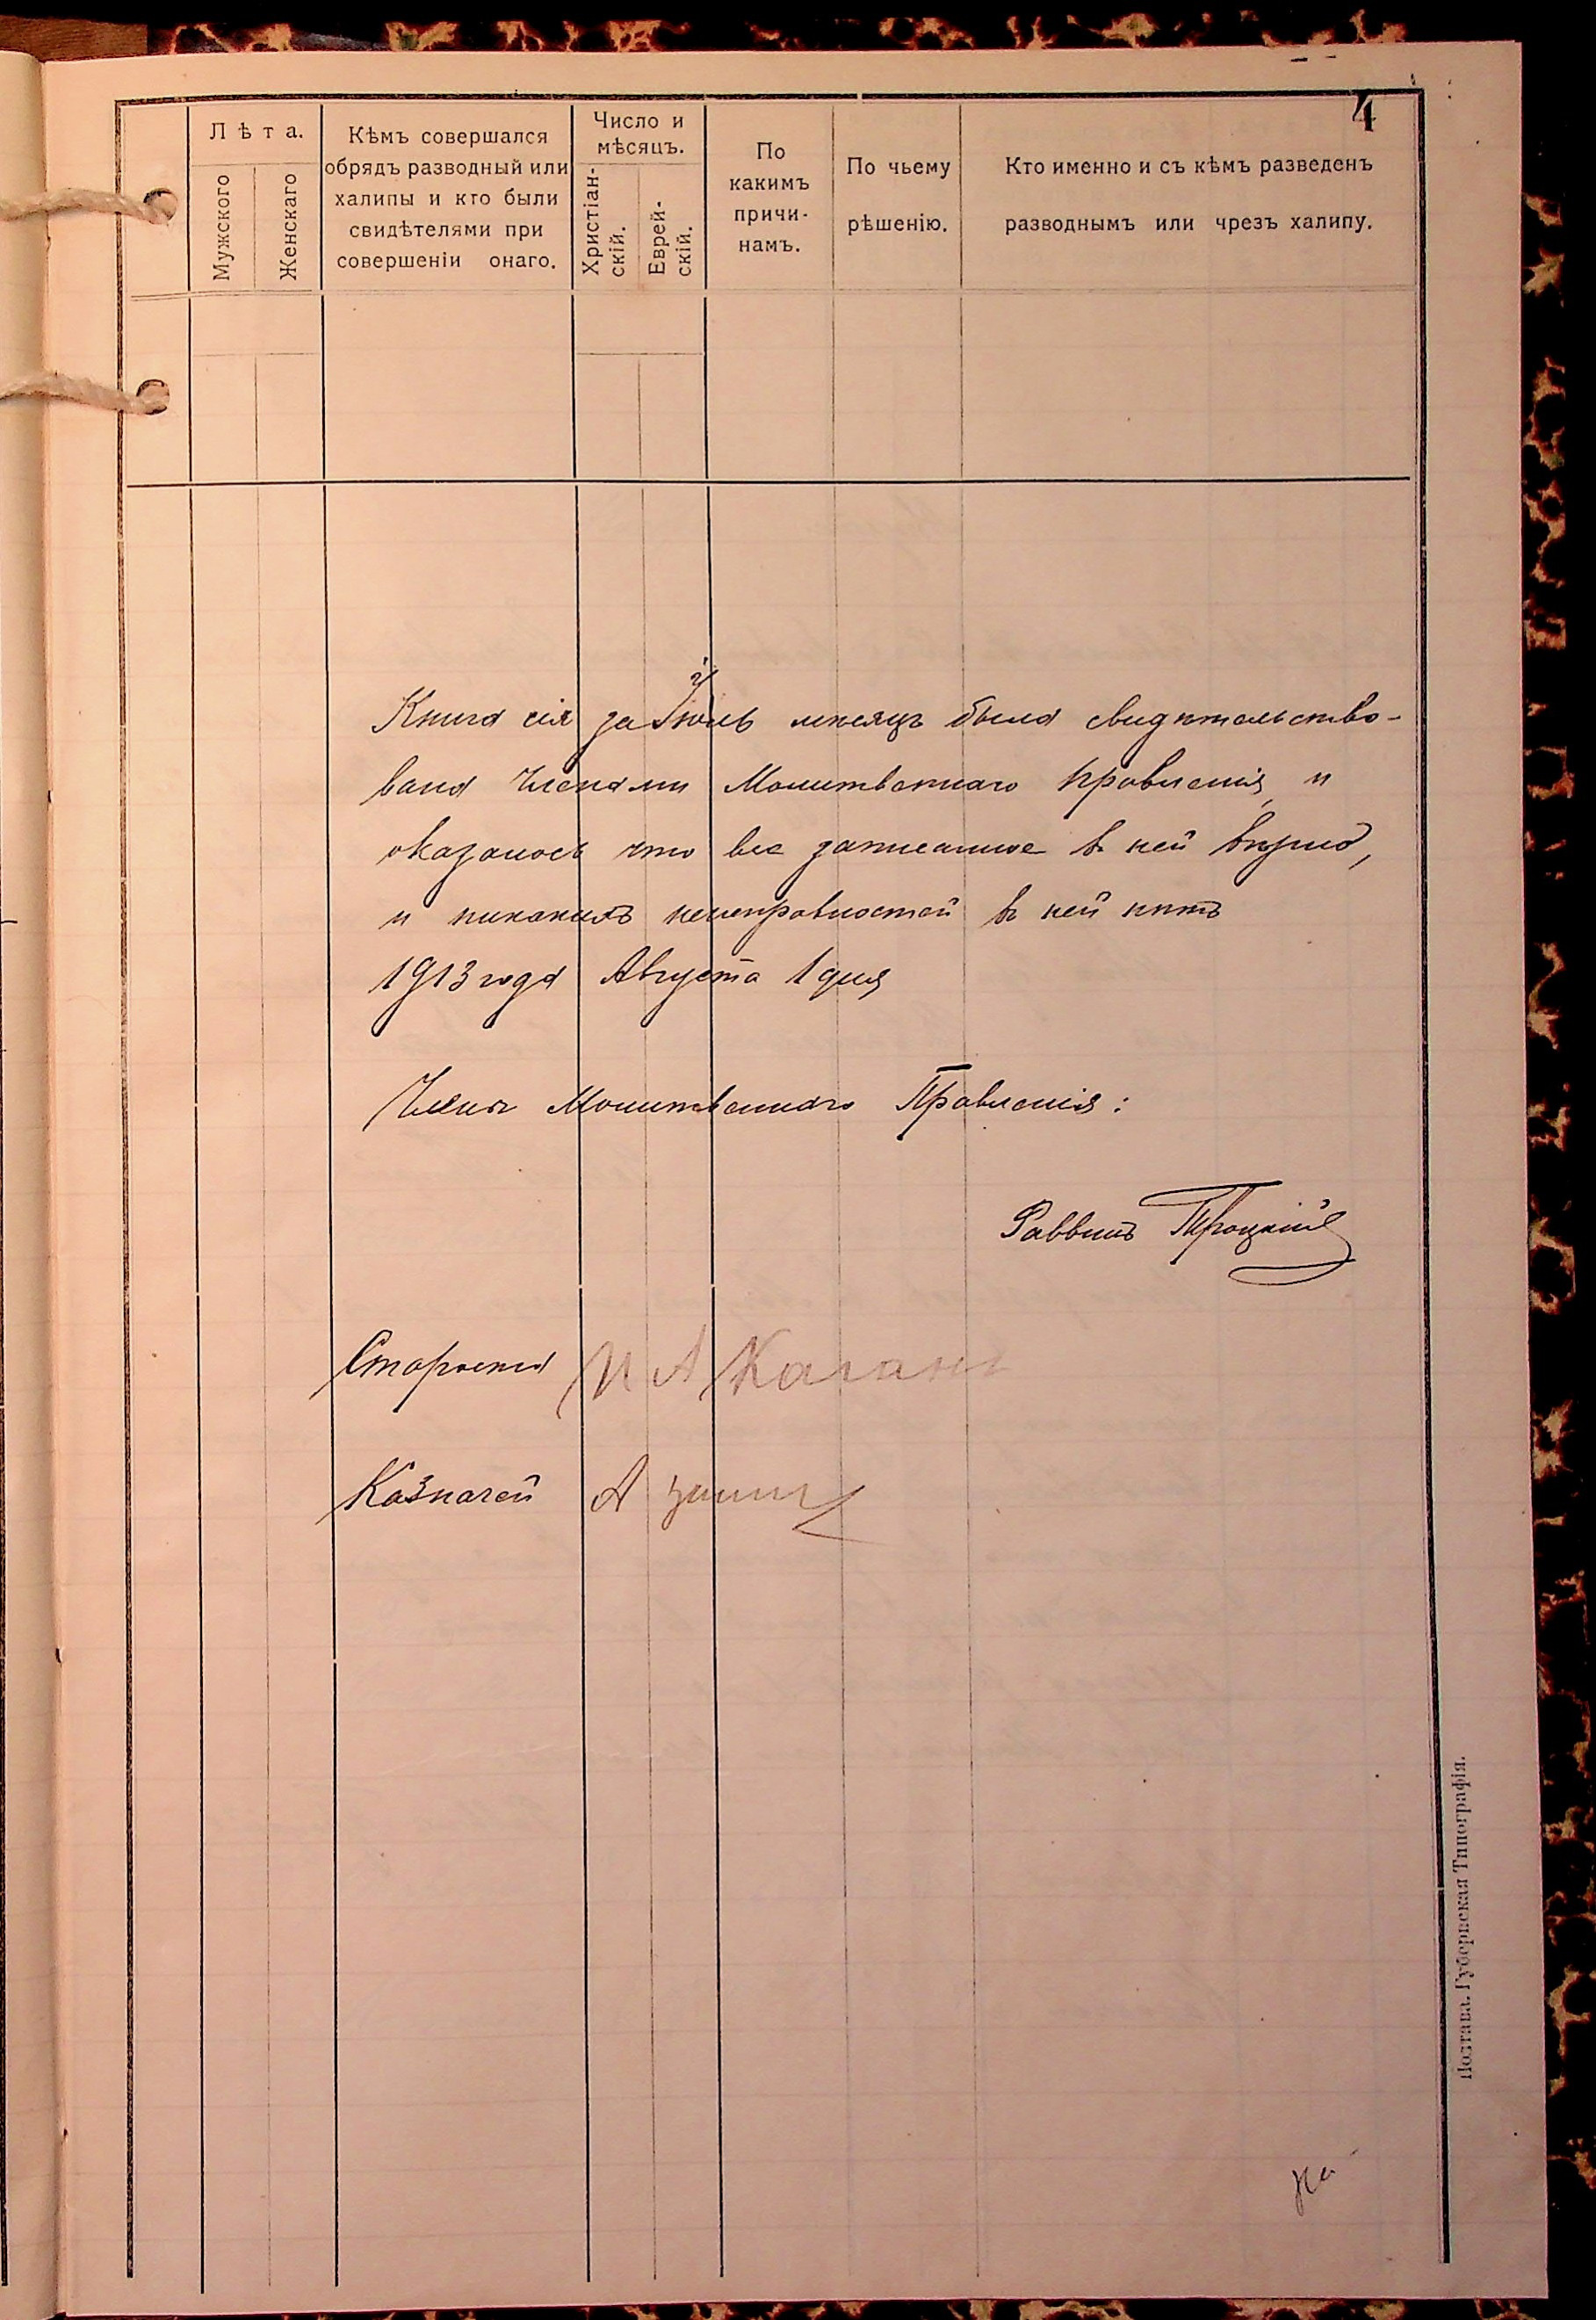 4
Лѣта.
Мужского
Женскаго
Кѣмъ совершался
обрядъ разводный или
халипы и кто были
свидѣтелями при
совершеніи онаго.
Число и
мѣсяцъ.
Христіан-
скій.
Еврей-
скій.
По
какимъ
причи-
намъ.
По чьему
рѣшенію.
Кто именно и съ кѣмъ разведенъ
разводнымъ или чрезъ халипу.
Книга сія за Іюль мѣсяцъ была свидѣтельство-
вана Членами Молитвеннаго правленія, и
оказалось что все записанное в ней вѣрно,
и никакихъ неисправностей в ней нѣтъ
1913 года Августа 1 дня
Члены Молитвеннаго Правленія:
Раввинъ Троцкій
Староста И А Каганъ
Казначей А
Полтава. Губернская Типографія.